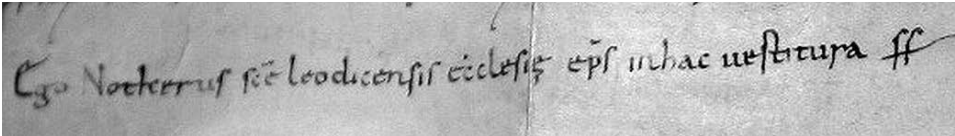 Ego Notkerus scē leodicensis ęcclesię ep̄s in hac uestitura ss